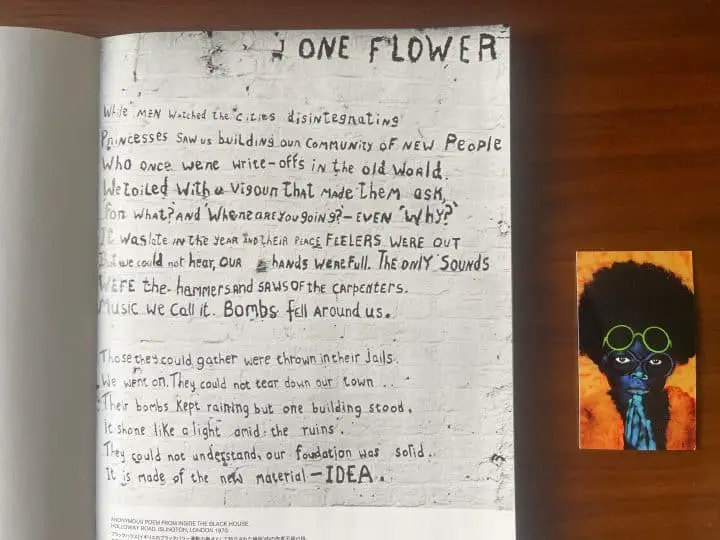 ONE FLOWER
While MEN watched the cities disintegrating
Princesses saw us building our community of new People
Who once were write-offs in the old World.
We toiled with a vigour that made them ask,
'for what?' and 'Where are you going?' - EVEN 'Why?'
It was late in the year and their peace feelers were out
But we could not hear, our hands were full. The only sounds
WERE the hammers and saws of the carpenters.
Music we call it. Bombs fell around us.
Those they could gather were thrown in their jails.
We went on. They could not tear down our town ..
Their bombs kept raining but one building stood.
It shone like a light amid the ruins.
They could not understand, our foudation was solid.
It is made of the new material - IDEA.
ANONYMOUS POEM FROM INSIDE THE BLACK HOUSE.
HOLLOWAY ROAD, ISLINGTON, LONDON 1970.